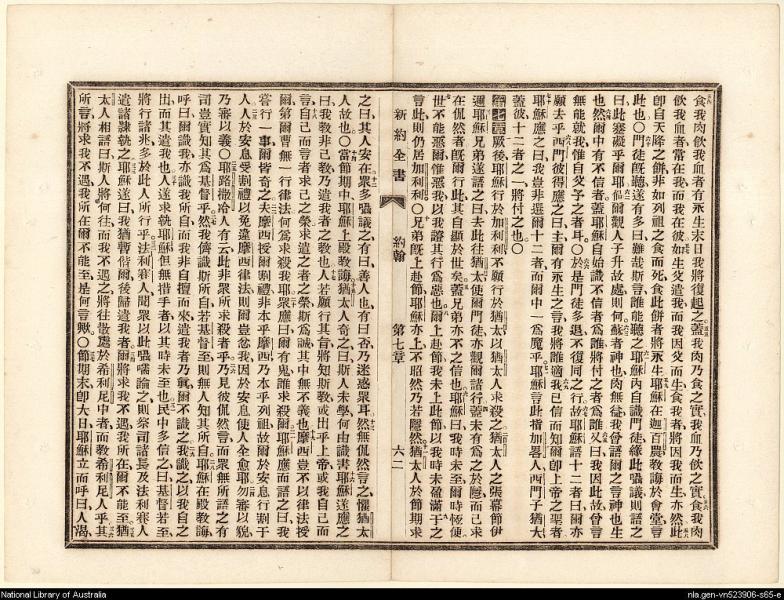 食我肉飲我血者有永生末日我將復起之蓋我肉乃食之實我血乃飲之實食我肉
飲我血者常在我而我在彼如生父遣我而我因父而生食我者將因我而生亦然此
卽自天降之餅非如列祖之食而死食此餅者將永生耶穌在迦百農教誨於會堂言
此也〇門徒旣聽遂有多曰難哉斯言誰能聽之耶穌內自識門徒緣此囁議則語之
曰此礙乎爾耶倘爾觀人子升故處則何蘇者神也肉無益我曾語爾之言神也生
也然爾中有不信者蓋耶穌自始識不信者爲誰將付之者爲誰又曰我因此故曾言
無能就我惟自父予之者耳〇於是門徒多退不復同之行故耶穌語十二者曰爾亦
願去乎西門彼得應之曰主爾有永生之言我將誰適我已信而知爾卽上帝之聖者
耶穌應之曰我豈非選爾十二者而爾中一爲魔乎耶穌言此指加畧人西門子猶大
蓋彼十二者之一將付之也〇
第七章厥後耶穌行於加利利不願行於猶太以猶太人求殺之猶太人之張幕節伊
邇耶穌兄弟遂語之曰去此往猶太使爾門徒亦觀爾諸行蓋未有爲之於隱而己求
在侃然者旣爾行此其自顯於世矣蓋兄弟亦不之信也耶穌曰我時未至爾時恆便
世不能惡爾惟惡我以我證其行爲惡也爾上赴節我未上此節以我時未盈滿于之
言此則仍居加利利〇兄弟旣上赴節耶穌亦上不昭然乃若隱然猶太人於節期求
新約全書 約翰 第七章 六二
之曰其人安在衆多囁議之有曰善人也有曰否乃迷惑衆耳然無侃然言之懼猶太
人故也〇當節期中耶穌上殿教誨猶太人奇之曰斯人未學何由識書耶穌遂應之
曰我教非己教乃遣我者之教也人若願行其旨將知斯教或出乎上帝或我自己而
言自己而言者求己之榮求遣之者之榮斯爲誠其中無不義也摩西豈不以律法授
爾第爾曹無一行律法何爲求殺我耶衆應曰爾有鬼誰求殺爾耶耶穌應而語之曰我
嘗行一事爾皆奇之夫摩西授爾割禮非本乎摩西乃本乎列祖故爾於安息行割于
人人於安息受割禮以免違摩西律法則爾豈忿我因於安息使人全愈耶勿審以貌
乃審以義〇耶路撒冷人有云此非衆所求殺者乎乃見彼侃然言而衆無所語之有
司豈實知其爲基督乎然我儕識斯所自若基督至則無人知其所自耶穌在殿教誨
呼曰爾識我亦識我所自而我非自擅而來遣我者乃眞爾不識之我識之以我自之
出而其遣我也人遂求執耶穌但無措手者以其時未至也民中多信之曰基督若至
將行諸兆多於此人所行乎法利賽人聞衆以此囁嚅論之則祭司諸長及法利賽人
遣諸隸執之耶穌遂曰我猶暫偕爾後歸遣我者爾將求我不遇我所在爾不能至猶
太人相語曰斯人將何往而我不遇之將往散處於希利尼中者而教希利尼人乎其
所言將求我不遇我所在爾不能至是何言歟〇節期末卽大日耶穌立而呼曰人渴
National Library of Australia
nla.gen-vn523906-s65-e